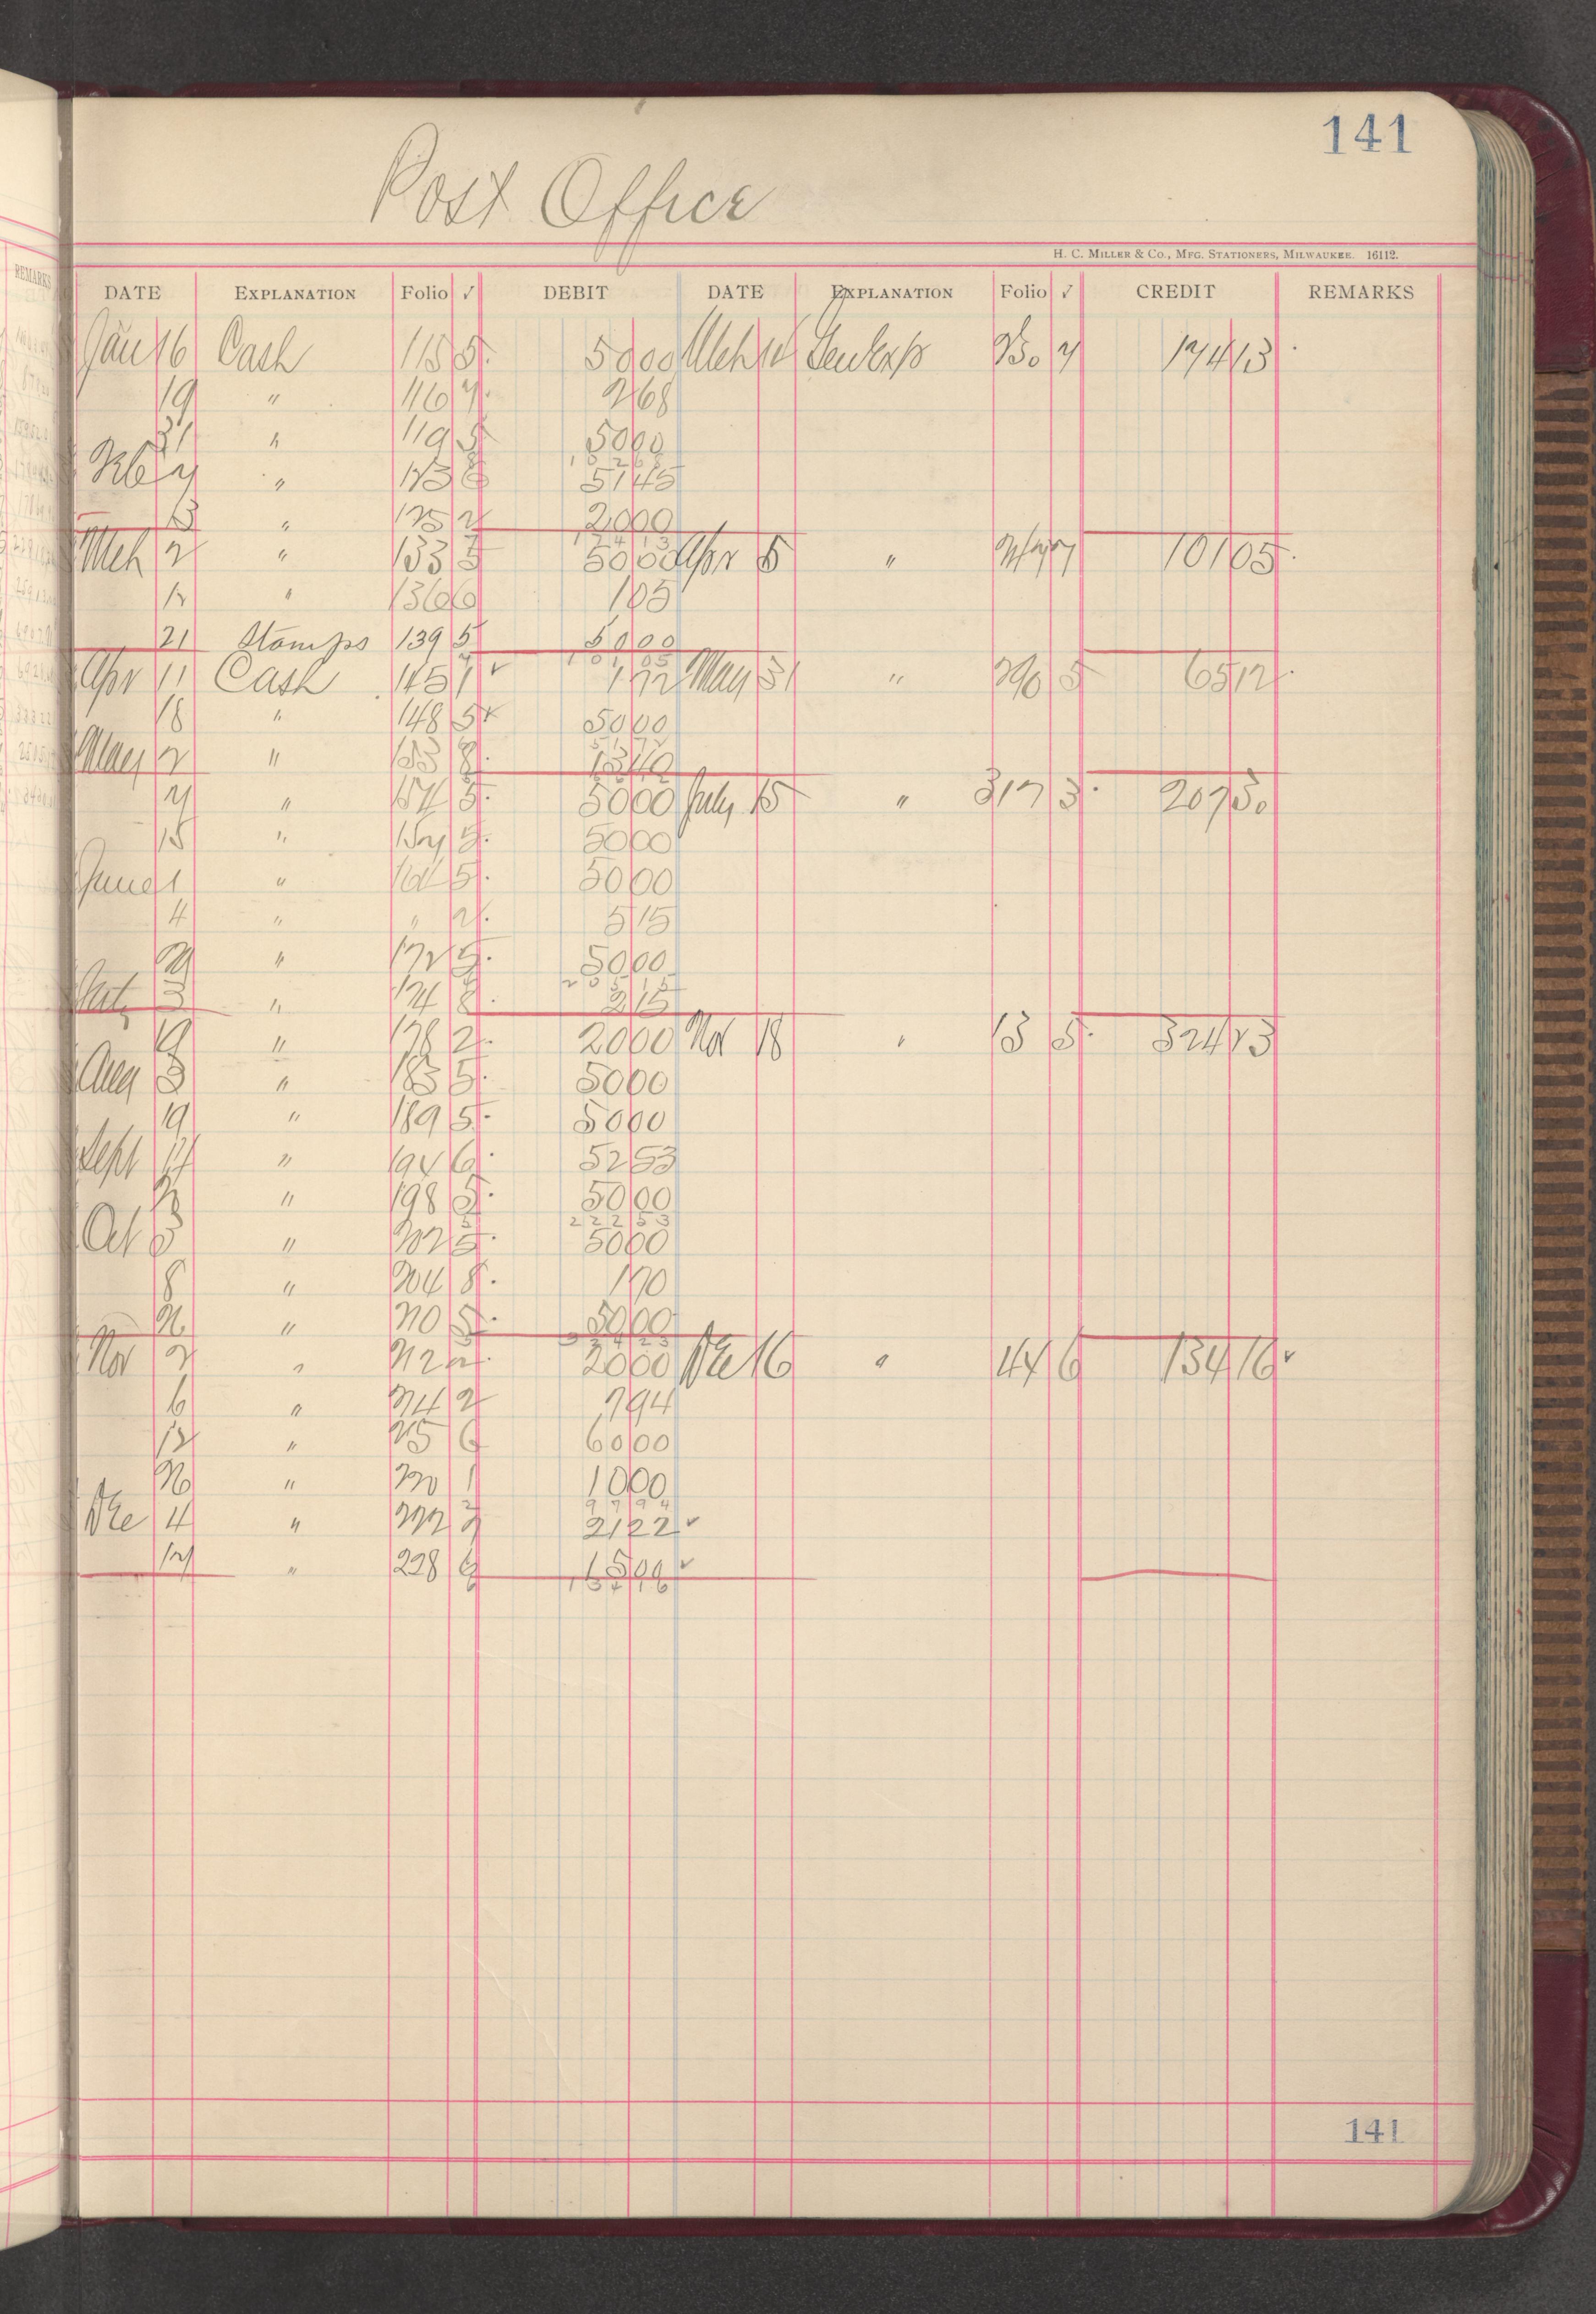 141
Post Office
H. C. Miller & Co., Mfg. Stationers, Milwaukee. 16112.
REMARKS
DATE EXPLANATION Folio √ DEBIT DATE EXPLANATION Folio √ CREDIT REMARKS
Jan 16 Cash 118 5 5000 Mch 174 13
19 " 116 7 268
31 " 119 5 5000
Feb " 8 5145
" 2000
Mch 2 " 133 5 5000 Apr 5 " 101 05
" 136 6 105
21 Stamps 139 5 5000
10105
Apr 11 Cash 145 1 172 May 31 " 5 65 12
18 " 148 5 5000
May 2 " 153 8 1340
" 5 5000 July 15 " 317 3 207 30
18 " 5000
June 1 " 5 5000
4 " " 2 515
" 172 5 5000
July 3 " 174 8 215
19 " 178 2 2000 Nov 18 " 13 5 324 23
Aug 3 " 183 5 5000
19 " 189 5 5000
Sept " 194 6 5253
" 198 5 5000
22253
Oct 3 " 202 5 5000
8 " 204 8 170
" 210 5 5000
32423
Nov 2 " 212 2000 Dec 16 " 44 6 134 16
6 " 214 2 794
12 " 215 6 6000
26 " 220 1 1000
9794
Dec 4 " 222 2122 ✓
" 228 6 1500 ✓
13416
141